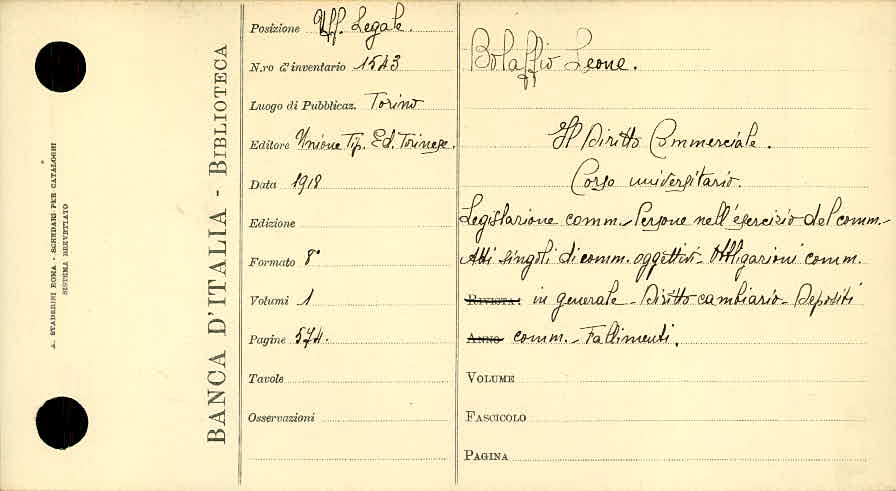 A. STADERINI ROMA - SCHEDARI PER CATALOGHI
SISTEMA BREVETTATO
BANCA D'ITALIA - BIBLIOTECA
Posizione Uff. Legale.
N.ro d'inventario 1543
Luogo di Pubblicaz. Torino
Editore Unione Tip. Ed. Torinese.
Data 1918
Edizione
Formato 8°
Volumi 1
Pagine 574.
Tavole
Osservazioni
Bolaffio Leone.
Il Diritto Commerciale.
Corso universitario.
Legislazione comm. - Persone nell'esercizio del comm. -
Atti singoli di comm. oggettivi - Obbligazioni comm.
RIVISTA: in generale - Diritto cambiario - Depositi
ANNO comm. - Fallimenti.
VOLUME
FASCICOLO
PAGINA